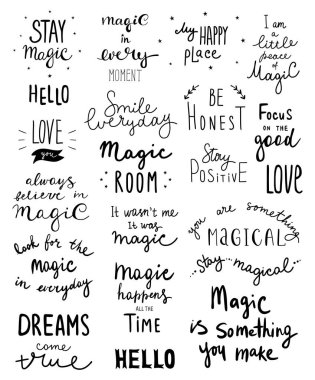 STAY
Magic
magic
in
every
MOMENT
My HAPPY
PLACE
I am
a little
peace
of
Magic
HELLO
Smile
everyday
BE
HONEST
Focus
ON THE
good
LOVE
you
Magic
ROOM
Stay
Positive
LOVE
always
believe in
Magic
It wasn't me
It was
magic
you are something
MAGICAL
look for the
Magic
in everyday
Magic
happens
ALL THE
TIME
stay magical
Magic
is Something
you make
DREAMS
come
true
HELLO